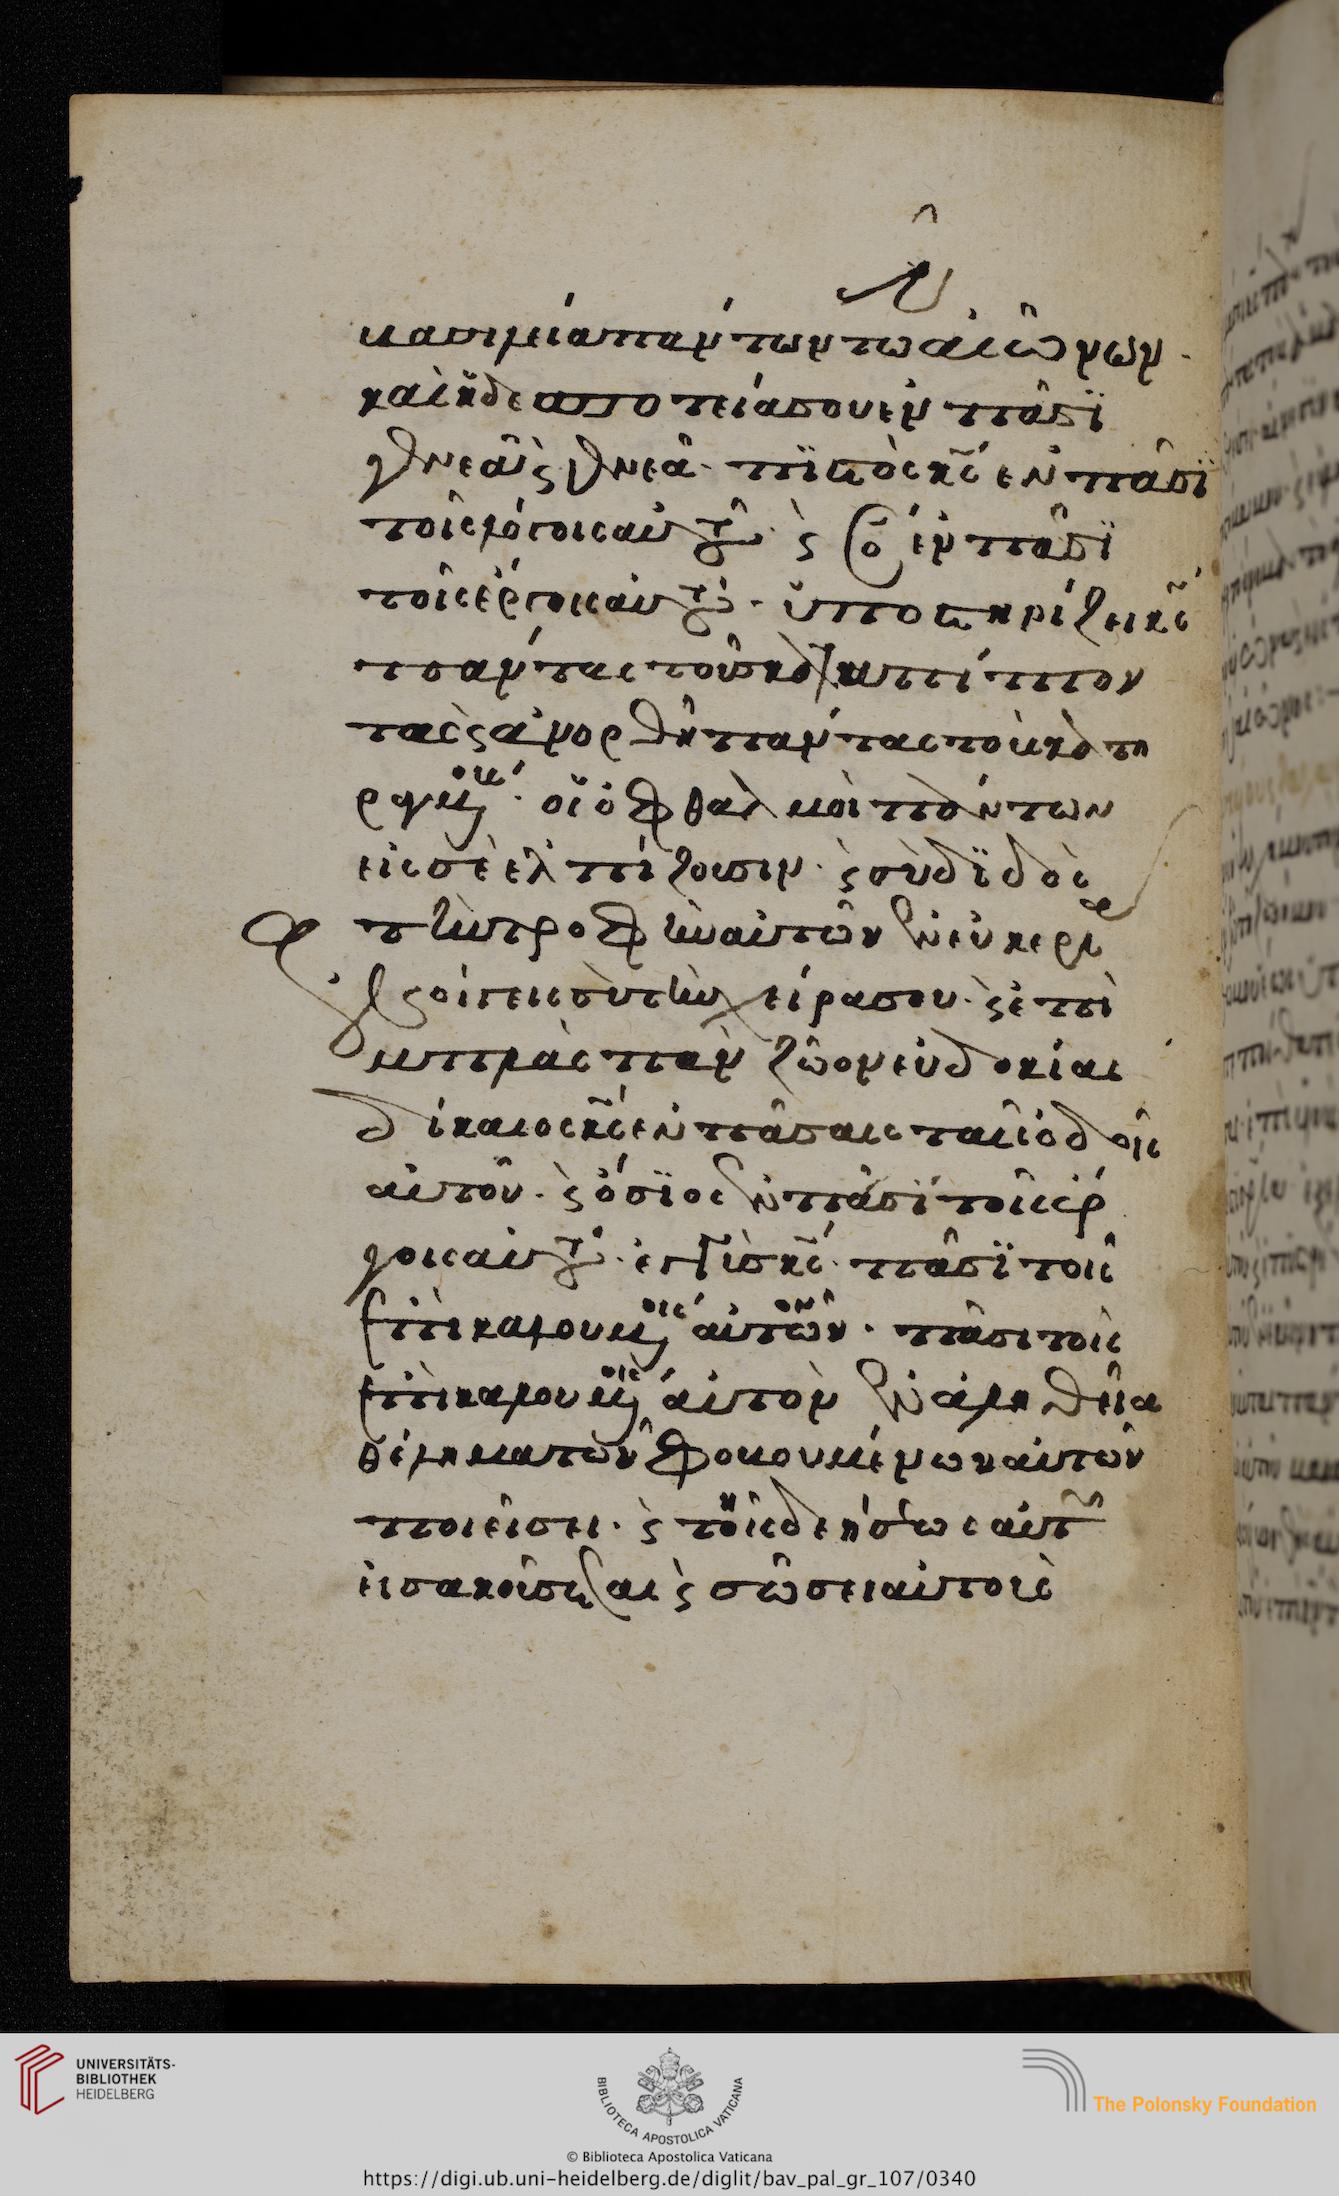 βασιλεία πάντων τῶν αἰώνων·
καὶ ἡ δεσποτεία σου ἐν πᾶσϊ
γενεᾷ ϛ γενεᾷ· πϊστὸς κ̅ς̅ ἐν πᾶσϊ
τοῖς λόγοις αὐτοῦ· ϛ ὅσιος ἐν πᾶσϊ
τοῖς ἔργοις αὐτοῦ· ὑποστηρίζει κ̅ς̅
πάντας τοὺς καταπίπτον
τας ϛ ἀνορθοῖ πάντας τοὺς κατε
ραγμένους· οἱ ὀφθαλμοὶ πάντων
εἰς σὲ ἐλπίζουσιν· ϛ σὺ δϊδὸς
τὴν τροφὴν αὐτῶν ἐν εὐκερία
ἀνοίγεις σὺ τὴν χεῖρα σου· ϛ ἐπι
μπλὰς πᾶν ζῶον εὐδοκίας
δίκαιος κ̅ς̅ ἐν πᾶσαις ταῖς ὁδοῖς
αὐτοῦ· ϛ ὅσϊος ἐν πᾶσϊ τοῖς ἔρ
γοις αὐτοῦ· ἐγγὺς κ̅ς̅ πᾶσϊ τοῖς
ἐπικαλουμένοις αὐτὸν· πᾶσι τοῖς
ἐπικαλουμένοις αὐτὸν ἐν ἀληθεία
θέλημα τῶν φοβουμένων αὐτὸν
ποιείσει· ϛ τῆς δεήσεως αὐτῶν
εἰσακούσεται ϛ σώσει αὐτοὺς
UNIVERSITÄTS-
BIBLIOTHEK
HEIDELBERG
BIBLIOTECA APOSTOLICA VATICANA
The Polonsky Foundation
© Biblioteca Apostolica Vaticana
https://digi.ub.uni-heidelberg.de/diglit/bav_pal_gr_107/0340